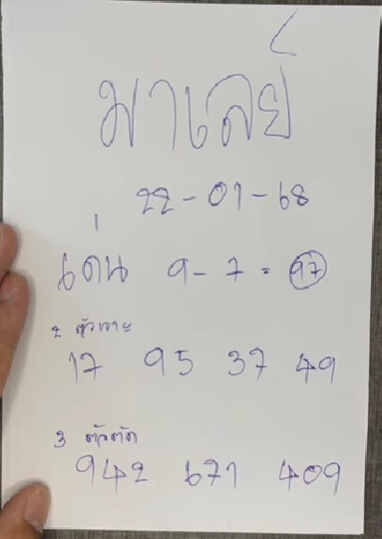 มาเลย์
22-01-68
เด่น 9-7=97
2 ตัวเจาะ
17 95 37 49
3 ตัวตัด
942 671 409